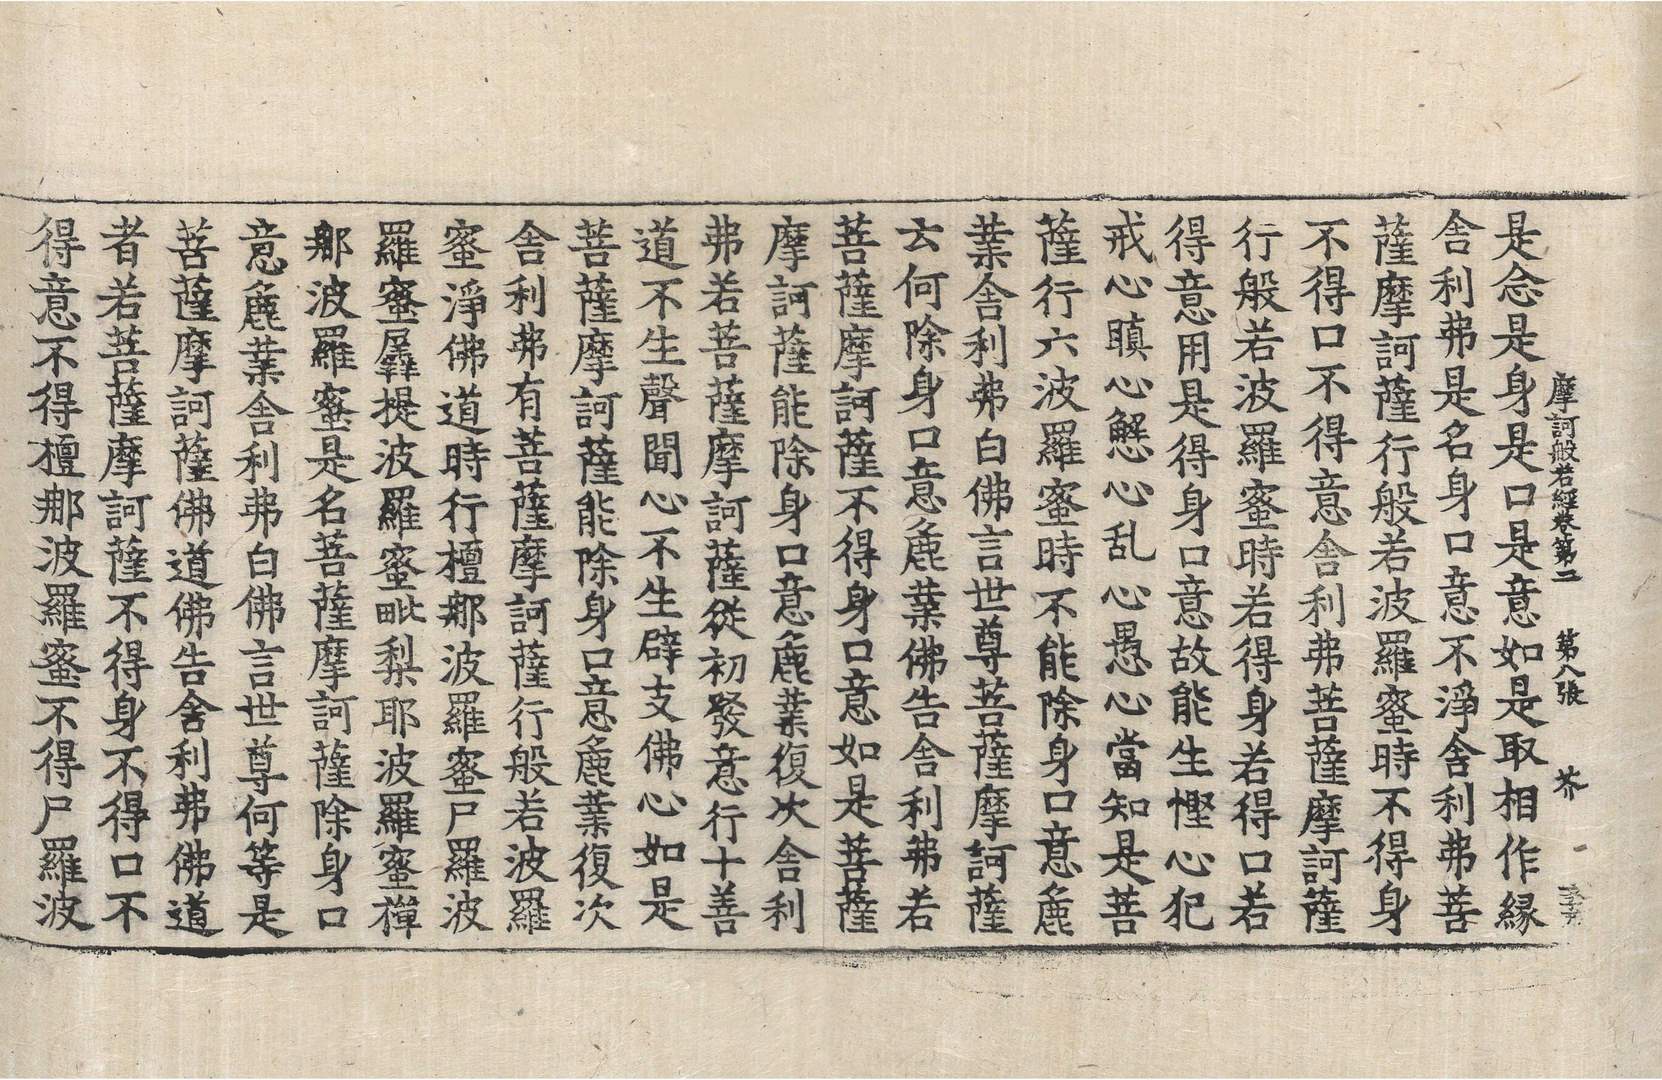 摩訶般若經卷第二 第八張 芥
是念是身是口是意如是取相作縁
舍利弗是名身口意不淨舍利弗菩
薩摩訶薩行般若波羅蜜時不得身
不得口不得意舍利弗菩薩摩訶薩
行般若波羅蜜時若得身若得口若
得意用是得身口意故能生慳心犯
戒心瞋心懈心乱心愚心當知是菩
薩行六波羅蜜時不能除身口意麁
業舍利弗白佛言世尊菩薩摩訶薩
云何除身口意麁業佛告舍利弗若
菩薩摩訶薩不得身口意如是菩薩
摩訶薩能除身口意麁業復次舍利
弗若菩薩摩訶薩從初發意行十善
道不生聲聞心不生辟支佛心如是
菩薩摩訶薩能除身口意麁業復次
舍利弗有菩薩摩訶薩行般若波羅
蜜淨佛道時行檀那波羅蜜尸羅波
羅蜜羼提波羅蜜毗梨耶波羅蜜禪
那波羅蜜是名菩薩摩訶薩除身口
意麁業舍利弗白佛言世尊何等是
菩薩摩訶薩佛道佛告舍利弗佛道
者若菩薩摩訶薩不得身不得口不
得意不得檀那波羅蜜不得尸羅波